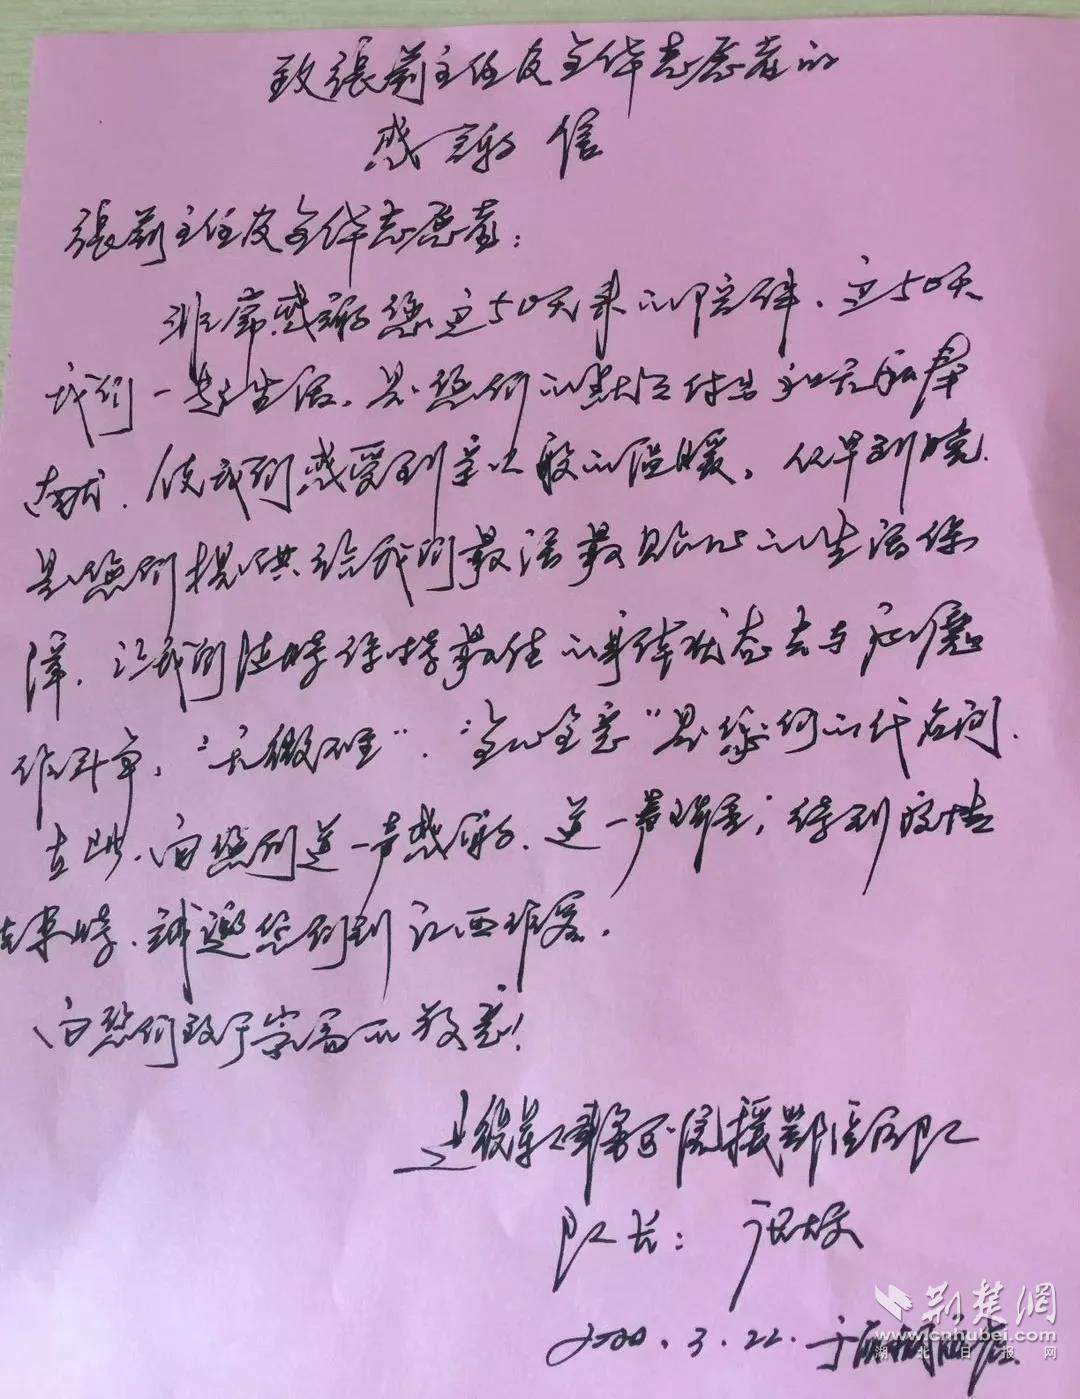 致張莉主任及全体志愿者的
感谢信
張莉主任及全体志愿者：
非常感谢您这50天来的陪伴、这50天
我们一起生活、是您们的默默付出和无私奉
献、使我们感受到亲人般的温暖。从早到晚、
是您们提供给我们最洁最贴心的生活保
障、让我们随时保持最佳的身体状态去与病魔
作斗争，“无微不至”、“全心全意”是您们的代名词、
在此、向您们道一声感谢、道一声珍重；待到疫情
结束时、诚邀您们到江西作客．
向您们致于崇高的敬意！
援鄂医疗队
队长：
2020.3.22.于
荆楚網
www.cnhubei.com
湖北日报网